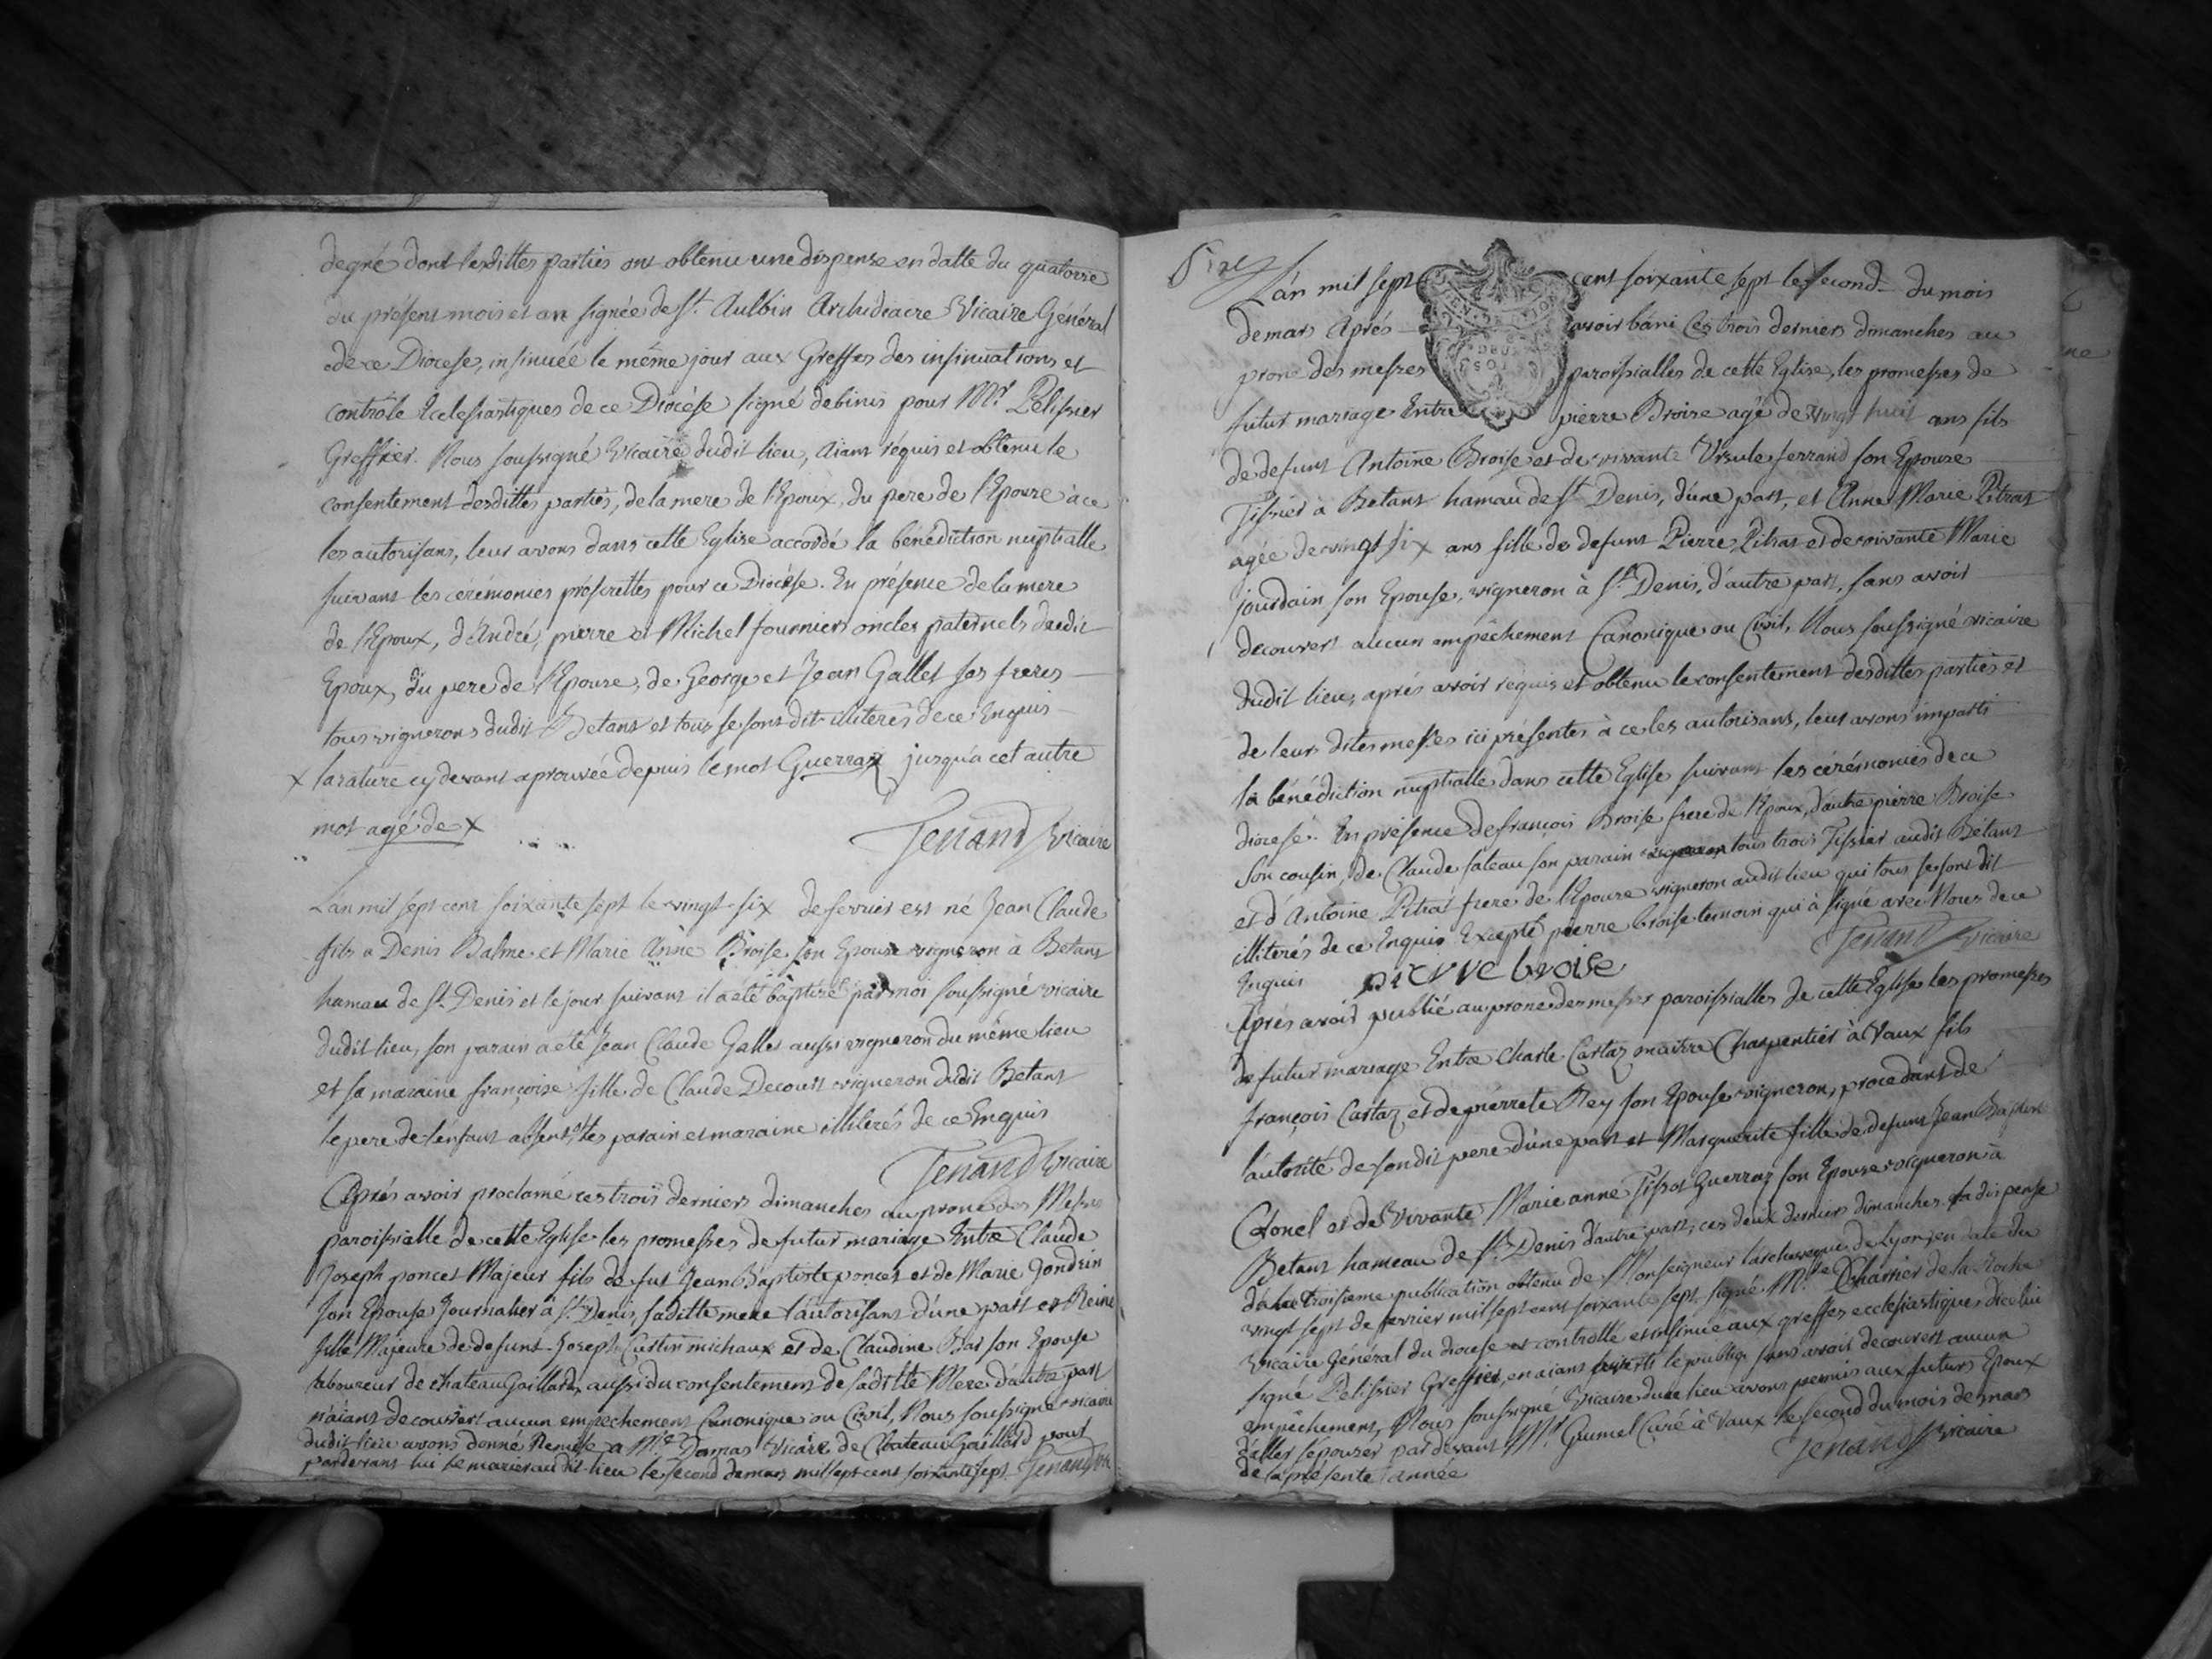 degré dont lesdittes parties ont obtenu une dispense en datte du quatorze
du présent mois et an signée de St. Aulbin Archidiacre Vicaire Général
de ce Diocese, insinuée le même jour aux Greffes des insinuations et
contrôle Ecclesiastiques de ce Diocèse signé debinis pour Mr. Pelissier
Greffier. Nous soussigné Vicaire dudit lieu, aiant réquis et obtenu le
consentement desdittes parties, de la mere de l'Epoux, du pere de l'Epouse à ce
les autorisans, leur avons dans cette Eglise accordé la bénédiction nuptialle
suivant les cérémonies préscrittes pour ce Diocèse. En présence de la mere
de l'Epoux, d'André, pierre et Michel fournier oncles paternels dudit
Epoux, du pere de l'Epouse, de George et Jean Gallet ses freres
tous vignerons dudit Betant et tous se sont dit illiterés de ce Enquis
x la rature cy devant aprouvée depuis le mot Guerraz jusqu'a cet autre
mot agé de x
Tenand Vicaire
L'an mil sept cent soixante sept le vingt six de fevrier est né Jean Claude
fils a Denis Balme et Marie Anne Broise son Epouse vigneron à Betant
hamau de St. Denis et le jour suivant il a été baptisé par moi soussigné vicaire
dudit lieu, son parain a été Jean Claude Gallet aussi vigneron du même lieu
et sa maraine françoise fille de Claude Decourt vigneron dudit Betant
le pere de l'enfant absent, les parain et maraine illiterés de ce Enquis
Tenand Vicaire
Après avoir proclamé ces trois derniers dimanches au prone des Messes
paroissialle de cette Eglise les promesses de futur mariage Entre Claude
Joseph poncet Majeur fils de fut Jean Baptiste poncet et de Marie Gondrin
son Epouse Journalier à St. Denis, saditte mere l'autorisant d'une part et Reine
fille Majeure de defunt Joseph Curtin michaux et de Claudine Bas son Epouse
laboureur de chateau Gaillard, aussi du consentement de saditte Mere d'autre part
n'aiant decouvert aucun empechement Canonique ou Civil, Nous soussigné vicaire
dudit lieu avons donné Remise a Mre. Damas Vicaire de Chateau Gaillard pour
pardevant lui se marier audit lieu le second de mars mil sept cent soixante sept Tenand Vic
L'an mil sept cent soixante sept le second du mois
de mars Aprés avoir bani les trois derniers dimanches au
prone des messes paroissialles de cette Eglise, les promesses de
futur mariage Entre pierre Broise agé de vingt huit ans fils
de defunt Antoine Broise et de vivante Ursule ferrand son Epouse
Tissier à Betant hamau de St. Denis, d'une part, et Anne Marie Pitrat
agée de vingt six ans fille de defunt Pierre Pitrat et de vivante Marie
jourdain son Epouse, vigneron à St. Denis, d'autre part, sans avoir
decouvert aucun empêchement Canonique ou Civil, Nous soussigné vicaire
dudit lieu, aprés avoir réquis et obtenu le consentement desdittes parties et
de leurs dites meres ici présentes à ce les autorisans, leur avons imparti
la bénédiction nuptialle dans cette Eglise suivant les cérémonies de ce
diocesé. En présence de françois Broise frere de l'Epoux, d'autre pierre Broise
son cousin, de Claude fateau son parain tous trois Tissier audit Bétant
et d'Antoine Pitrat frere de l'Epouse vigneron audit lieu qui tous se sont dit
illiterés de ce Enquis Excepté pierre broise temoin qui à signé avec Nous de ce
Enquis pierre broise Tenand Vicaire
Aprés avoir publié au prone des messes paroissialles de cette Eglise les promesses
de futur mariage Entre Charle Cartaz maitre Charpentier à Vaux fils
françois Cartaz et de pierrete Rey son Epouse vigneron, procedant de
l'autorité de sondit pere d'une part et Marguerite fille de defunt Jean Baptiste
Colonel et de Vivante Marie anne Tissot Guerraz son Epouse vigneron à
Betant hameau de St. Denis d'autre part, ces deux derniers dimanches la dispense
de la troisieme publication obtenu de Monseigneur l'archevegue de Lyon, en date du
vingt sept de fevrier mil sept cent soixante sept, signé Mre. Charrier de la Roche
Vicaire Général du diocese et controllé et insinué aux greffes ecclesiastiques d'icelui
signé Pelissier Greffier, en aiant averti le publiq sans avoir decouvert aucun
empêchement, Nous soussigné Vicaire dudit lieu avons permis aux futurs Epoux
d'aller s'épouser pardevant Mr. Grumel Curé à Vaux le second du mois de mars
de la présente année Tenand Vicaire